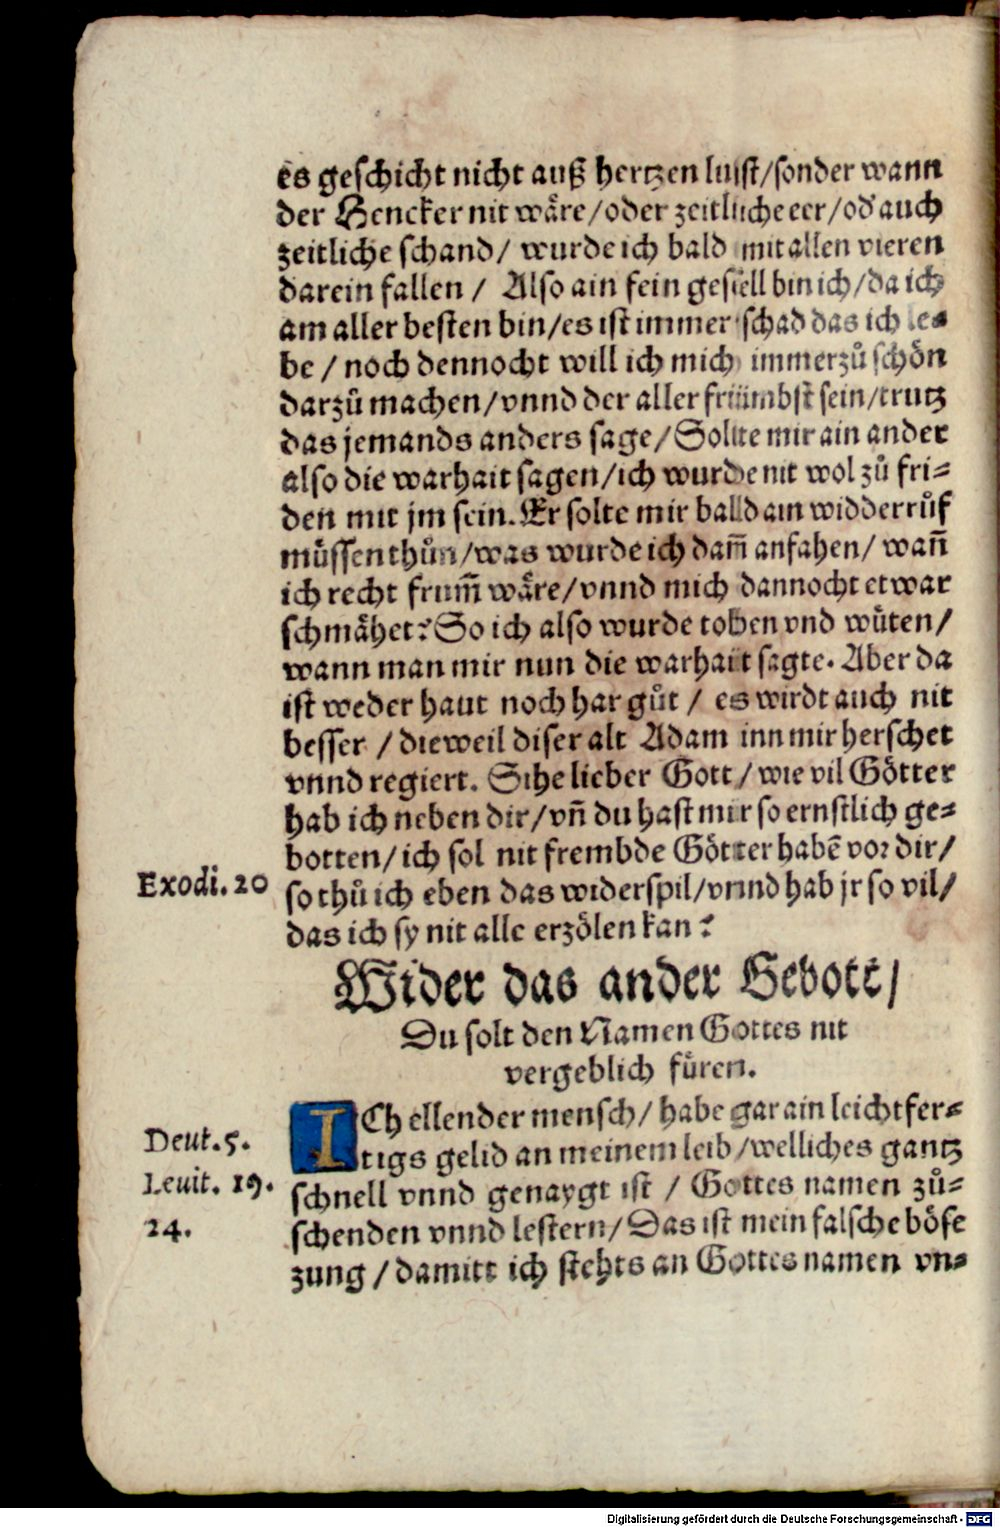 es geschicht nicht auß hertzen lust/sonder wann
der Hencker nit wåre/oder zeitliche eer/od' auch
zeitliche schand/ wurde ich bald mit allen vieren
darein fallen / Also ain fein gesell bin ich/da ich
am aller besten bin/es ist immer schad das ich le⸗
be / noch dennocht will ich mich immerzů schön
darzů machen/vnnd der aller frümbst sein/trutz
das jemands anders sage/Sollte mir ain ander
also die warhait sagen/ich wurde nit wol zů fri⸗
den mit jm sein. Er solte mir bald ain widderrůf
müssen thůn/was wurde ich dañ anfahen/ wañ
ich recht frum̃ wåre/vnnd mich dannocht etwar
schmåhet? So ich also wurde toben vnd wüten/
wann man mir nun die warhait sagte. Aber da
ist weder haut noch har gůt / es wirdt auch nit
besser / dieweil diser alt Adam inn mir herschet
vnnd regiert. Sihe lieber Gott/wie vil Götter
hab ich neben dir/vñ du hast mir so ernstlich ge⸗
botten/ich sol nit frembde Götter habē vor dir/
Exodi. 20
so thů ich eben das widerspil/vnnd hab jr so vil/
das ich sy nit alle erzölen kan?
Wider das ander Gebott/
Du solt den Namen Gottes nit
vergeblich füren.
ICh ellender mensch/ habe gar ain leichtfer⸗
Deut. 5.
tigs gelid an meinem leib/welliches gantz
Leuit. 19.
schnell vnnd genaygt ist / Gottes namen zů⸗
24.
schenden vnnd lestern/Das ist mein falsche böse
zung/damitt ich stehts an Gottes namen vn⸗
Digitalisierung gefördert durch die Deutsche Forschungsgemeinschaft - DFG